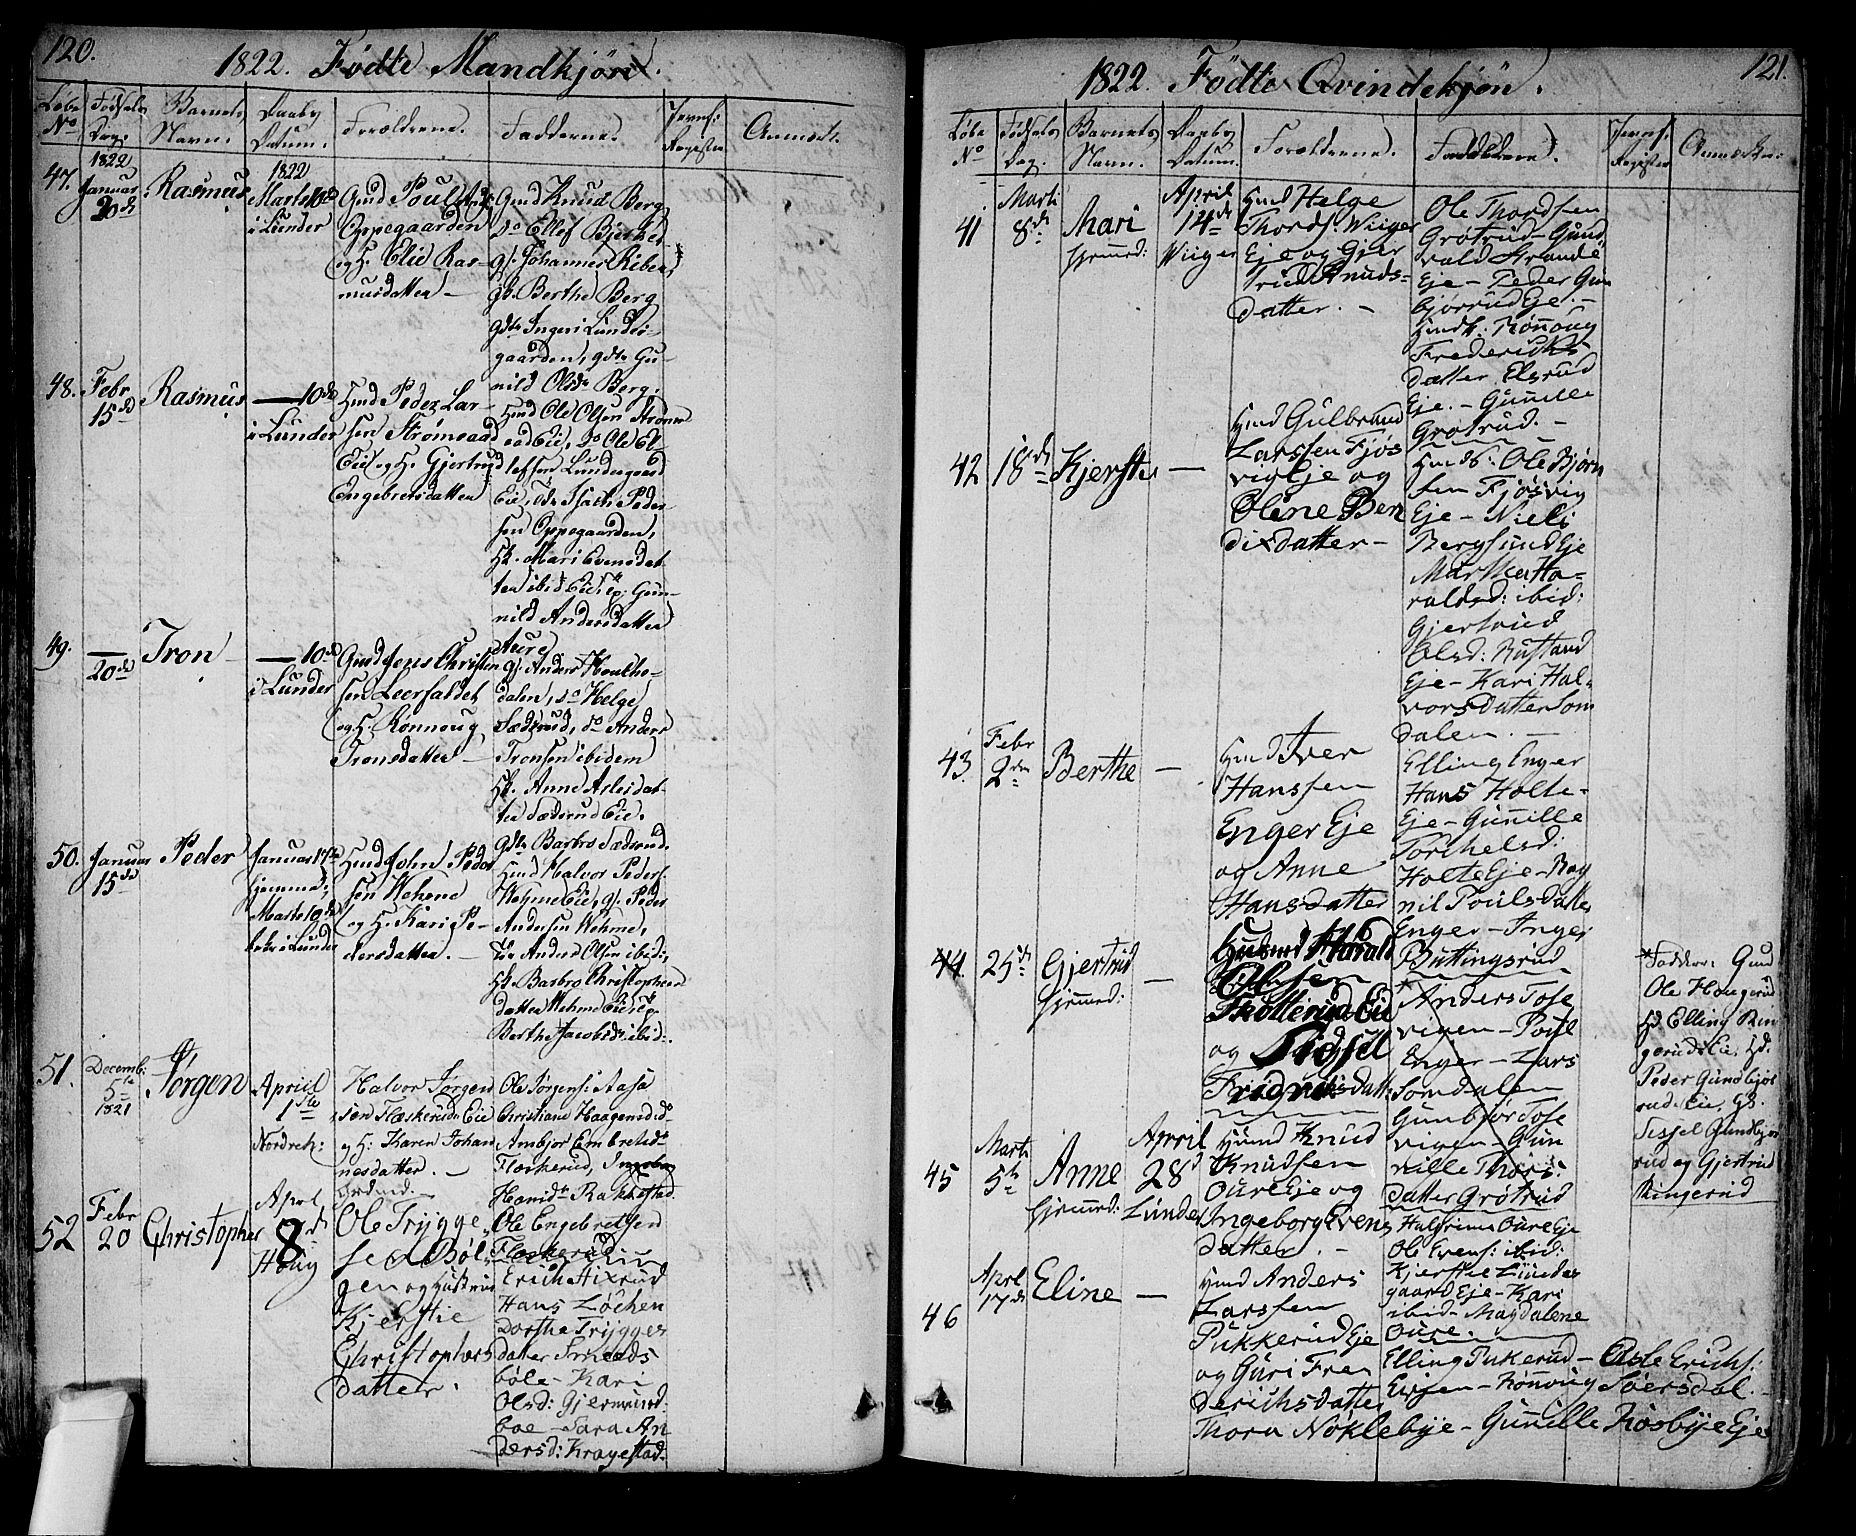 120.
1822. Fødte Mandkjøn.
Løbe No
Fødsels Dag.
Barnets Navn.
Daabs Datum.
Forældrene.
Fadderne.
Jevnf: Register
Anmærk.
47.
1822
Januar
20de
Rasmus
1822
Marts 10de
i Lunder
Gmd Poul
Oppegaarden
og H. Elie Ras-
musdatter —
Gmd Knud Berg
do Ellef Bjerke
gf. Johannes
gk. Berthe Berg
gdtr Ingeri Lunde-
gaarden, gdtr Gu-
nild Olsdr Berg.
48.
Febr
15de
Rasmus
— 10de
i Lunder
Hmd Peder Lar-
sen Strømsaad
Eie og H. Gjertrud
Engebretsdatter
Hmd Ole Olsen Strøms
aad Eie, do Ole El-
lefsen Lundegaard
Eie, Peder-
sen Oppegaarden,
Hk. Mari Evensdat-
ter ibid Eie, Gun-
nild Andersdatter
Aure
49.
— 20de
Tron
— 10de
i Lunder
Gmd Jens Christen
sen Leerfaldet
og H. Rønnoug
Tronsdatter —
gf. Anders
dalen, do Helge
Sædsrud, do Anders
Tronsen ibidem
Hk. Anne Atlesdat-
ter Sædsrud Eie.
gdtr Barbro Sædsrud.
50.
Januar
15de
Peder
Januar 17de
hjemmed:
Marts 10de
i Lunder
Hmd John Peder
sen Wehme
og H. Kari Pe-
dersdatter. —
Hmd Halvor Peders:
Wehme Eie, gf. Peder
Andersen Wehme,
Anders Olsen ibid:,
Hk. Barbro Christopher
datter Wehme Eie,
Berthe Jacobsdr ibid:
51.
Decemb:
5te
1821
Jørgen
April
1ste
Nordreh:
Halvor Jørgen
sen Flaskerud Eie
og H: Karen Johan
nesdatter. —
Ole Jørgens: Aasa
Christiane Haagensd
Ambjor Embretsd
Flaskerud, Ingeborg
Rakkestad.
52
Febr
20
Christopher
Aprl
8de
Houg
Ole Trÿgge
sen Bøl
gen og Hustrue
Kjerstie
Christophers
datter.
Ole Engebretsen
Flaskerud
Erich Hixrud
Hans Løchen
Dorthe Trygges
datter Smeds
bøle – Kari
Olsd: Gjermund
boe – Sara An
dersd: Kragestad.
121.
1822. Fødte Qvindekjøn.
Løbe No
Fødsels Dag.
Barnets Navn.
Daabs Datum.
Forældrene.
Fadderne.
Jevnf. Register
Anmærkn:
41
Marti
8de
Mari
hjemmed:
April
14de
Wiiger
Hmd Helge
Thords: Wiiger
Eje og Gjer
trud Knuds-
datter. —
Ole Thordsen
Grøtrud – Gund
vald Strande
Eje – Peder Gun
bjørrud Eje. –
Hmdk: Rönnoug
Fredericks
datter Elsrud
Eje. – Gunnille
Grøtrud. –
42
18de
Kjerstie
—
Hmd Gulbrand
Larssen Fjøs
vig Eje og
Olene Ben
dixdatter –
Hmds. Ole Bjørn
sen Fjøsvig
Eje – Nieli
Bergsund Eje
Marthe Ha-
raldsd: ibid:
Gjertrud
Olsd: Rustand
Eje – Kari Hal-
vorsdatter Som
dalen. —
43.
Febr
2den
Berthe
—
Hmd Iver
Hanssen
Enger Eje
og Anne
Hansdatter
Elling Enger
Hans Holte-
Eje – Gunnille
Torchelsd:
Holte Eje – Rag
nil Poulsdatter
Enger – Inger
Buttingsrud
44.
25de
Gjertrud
hjemmed:
—
Husmd Harald
Olsen
Skollerud Eie
og Sidsel
Fridrichsdatt:
* Anders Tose
vigen – Poul
Enger – Lars
Somdalen
Gunbjor Tose
vigen – Gun
nille Thors
datter Grøtrud
* Faddere: Gmd
Ole Haugerud
Hd Elling Rin
gerudseie, Hd.
Peder Gundbjør
rud Eie, gk.
Sissel Gundbjør
rud og Gjertrud
Ringerud
45
Marti
5te
Anne
hjemmed:
April
28de
Lunder
Hmd Knud
Knudsen
Oure Eje og
Ingeborg Evens
datter. –
Halgrim Oure Eje
Ole Evens: ibid:
Kjerstie Lundes
gaard Eje – Kari
ibid – Magdalene
Oure.
46
Aprl
17de
Eline
—
Hmd Anders
Larssen
Pukkerud Eje
og Guri Fre
derichsdatter
Elling Pukerud – Asle Erichs:
Eijsen – Rönnoug Sørsdal. –
Thora Nøklebye – Gunnille Røsbye Eje